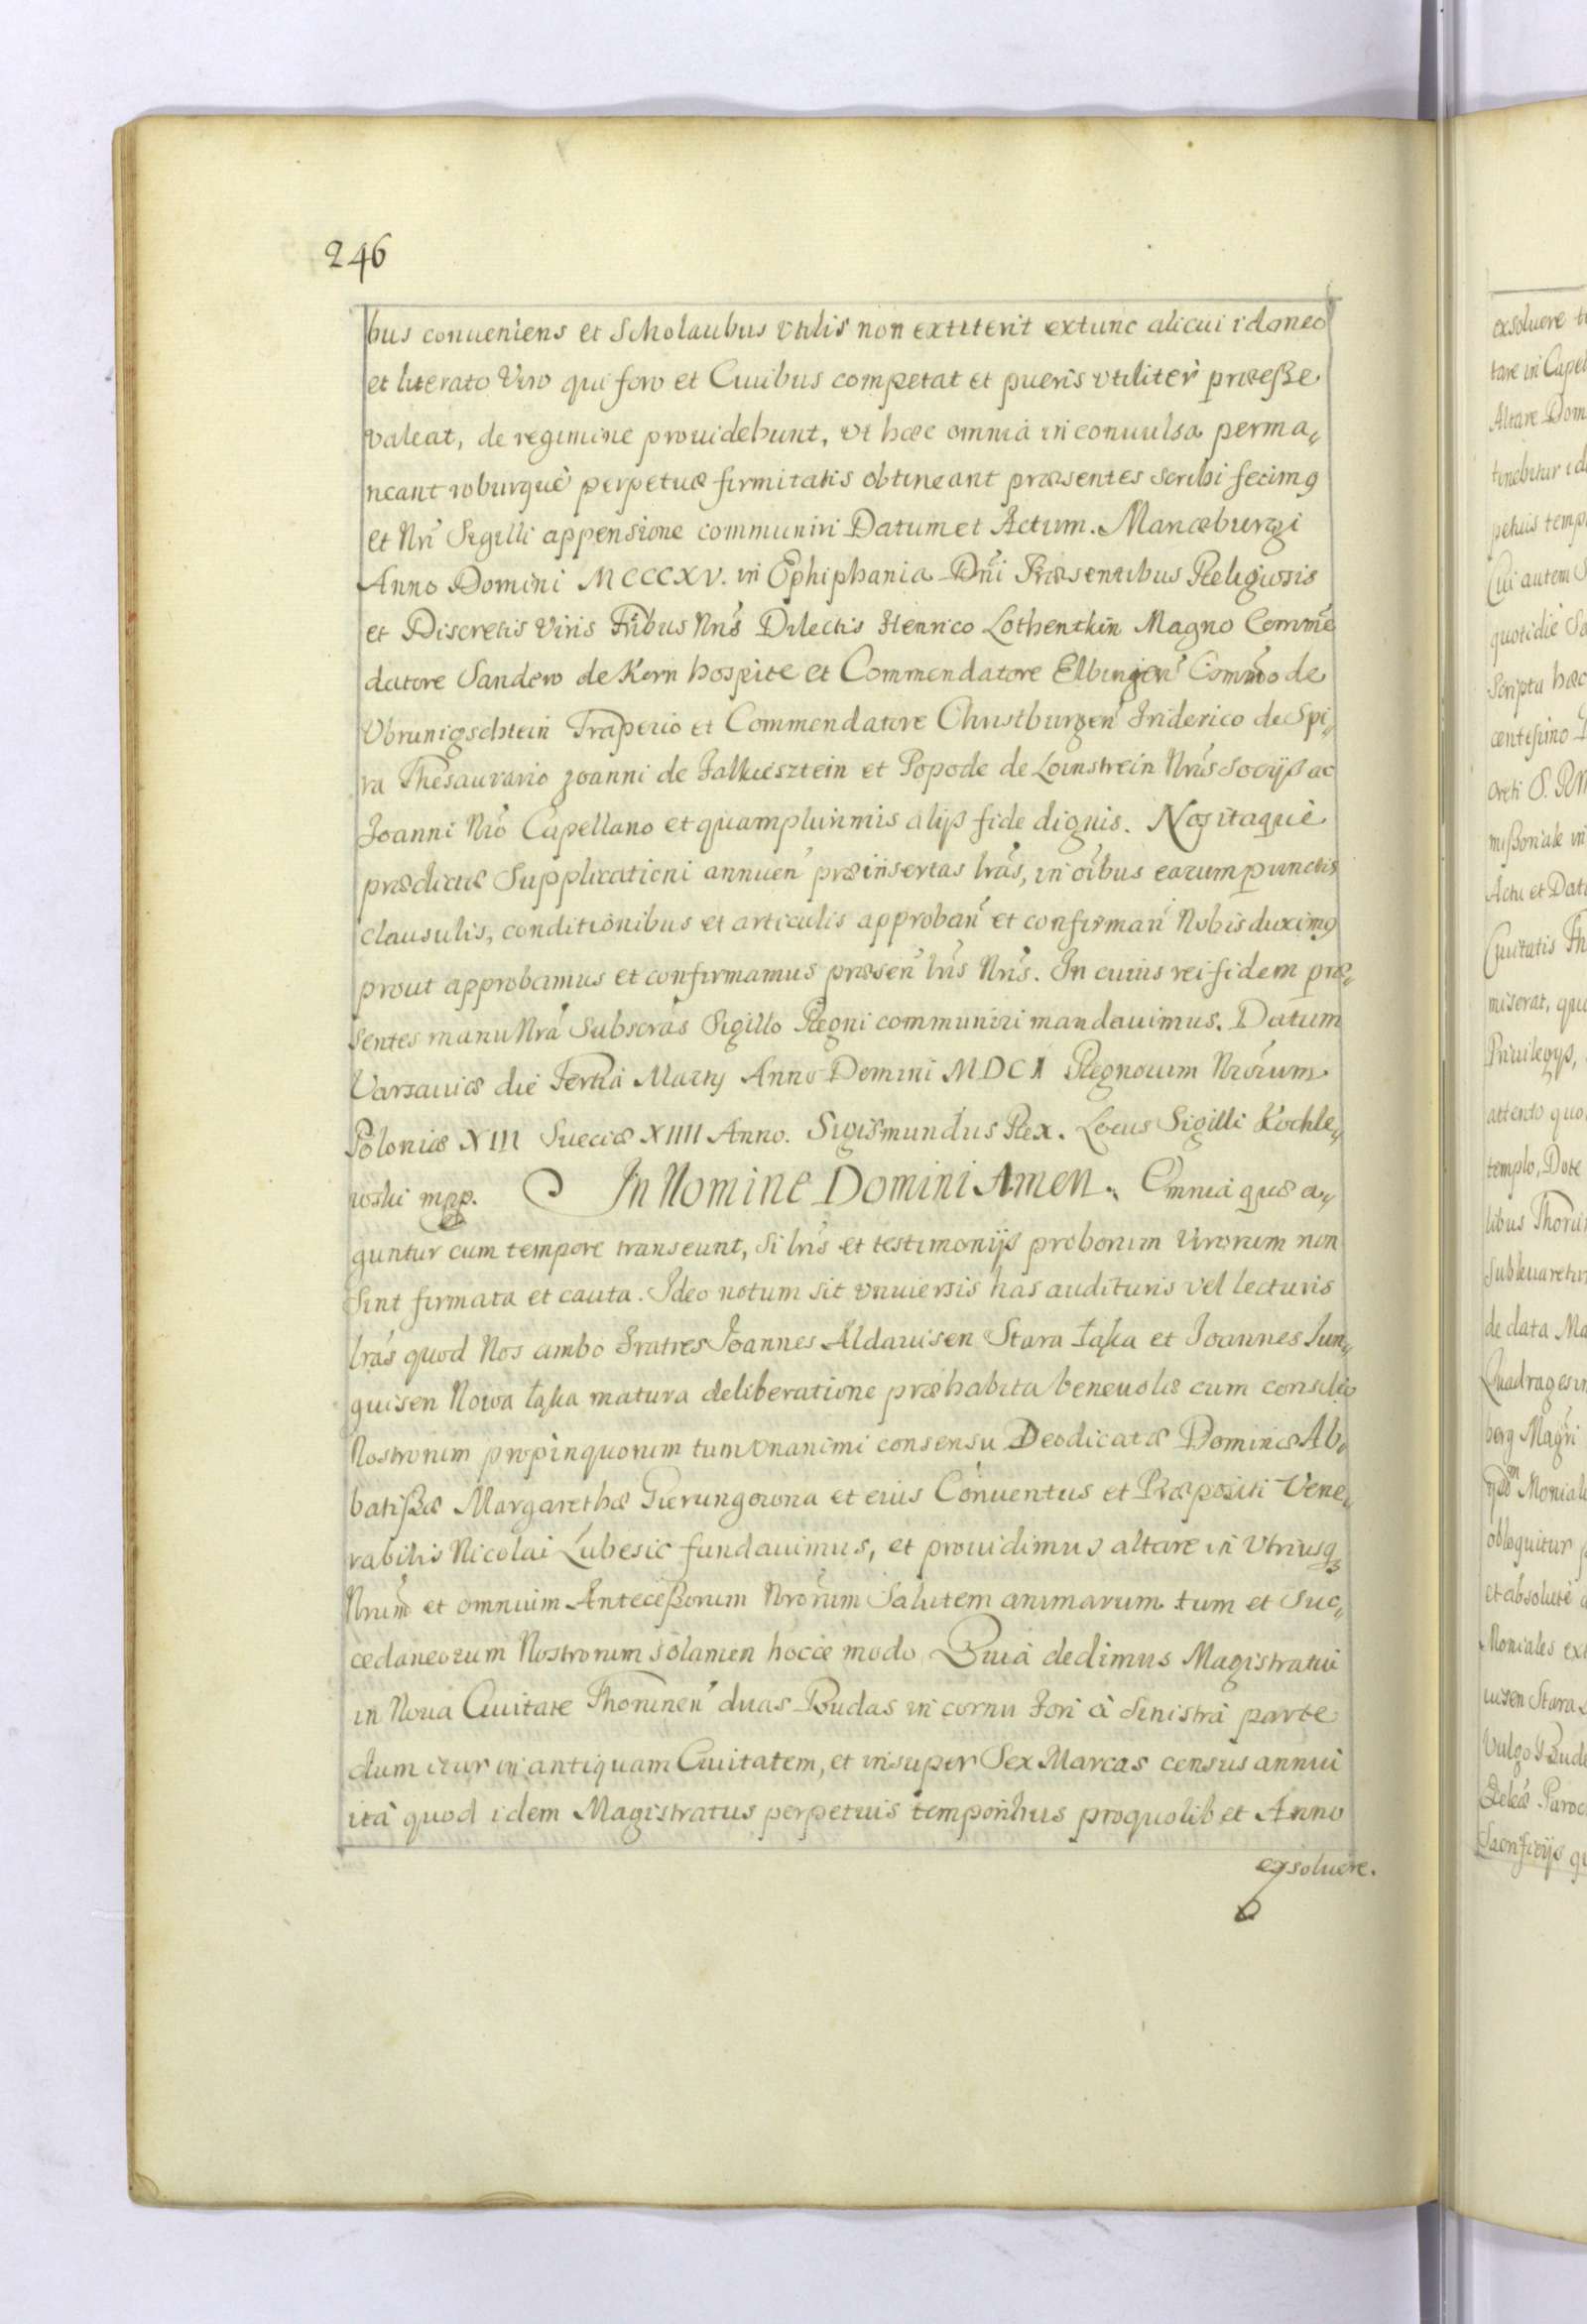 246
bus conueniens et Scholaribus vtilis non extiterit extunc alicui idoneo
et literato Viro qui foro et Ciuibus competat et pueris vtilitèr præeße
valeat, de regimine prouidebunt, vt hæc omnia inconuulsa perma„
neant roburquè perpetuæ firmitatis obtineant præsentes scribi fecimꝯ
et Nri Sigilli appensione communiri Datum et Actum. Mariæburgi
Anno Domini MCCCXV. in Ephiphania Dni Præsentibus Religiosis
et Discretis Viris Fribus Nris Dilectis Henrico Lothentkin Magno Comme
datore Sandero de Korn hospite et Commendatore Elbingen Commo de
Vbrunigschtein Traperio et Commendatore Christburgen Friderico de Spi„
ra Thesaurario Joanni de Falkiesztein et Popode de Loinstrein Nris Socijs ac
Joanni Nro Capellano et quamplurimis alijs fide dignis. Nos itaquè
prædictæ Supplicationi annuen præinsertas lras, in oibus earum punctis
clausulis, conditionibus et articulis approban et confirman Nobis duximꝯ
prout approbamus et confirmamus præsen lris Nris. In cuius rei fidem præ„
sentes manu Nra Subscras Sigillo Regni communiri mandauimus. Datum
Varsauiæ die Tertia Martij Anno Domini MDCI Regnorum Nrorum
Poloniæ XIII Sueciæ XIIII Anno. Sigismundus Rex. Locus Sigilli Kochle„
wski mpp. In Nomine Domini Amen. Omnia quæ a„
guntur cum tempore transeunt, si lris et testimonijs proborum Virorum non
Sint firmata et cauta. Ideo notum sit vniuersis has audituris vel lecturis
lras quod Nos ambo Fratres Joannes Aldawisen Stara Łąka et Joannes Jun„
guisen Nowa Łąka matura deliberatione præhabita beneuolæ cum consilio
Nostrorum propinquorum tum vnanimi consensu Deodicatæ Dominæ Ab„
batißæ Margarethæ Gierungowna et eius Conuentus et Præpositi Vene„
rabilis Nicolai Lubesic fundauimus, et prouidimus altare in Vtriusqꝫ
Nrum et omnium Anteceßorum Nrorum Salutem animarum tum et Suc„
cedaneorum Nostrorum solamen hocce modo Quia dedimus Magistratui
in Noua Ciuitate Thorunen duas Budas in cornu Fori à Sinistrâ parte
dum itur in antiquam Ciuitatem, et insuper Sex Marcas census annui
ità quod idem Magistratus perpetuis temporibus proquolibet Anno
exsoluere.